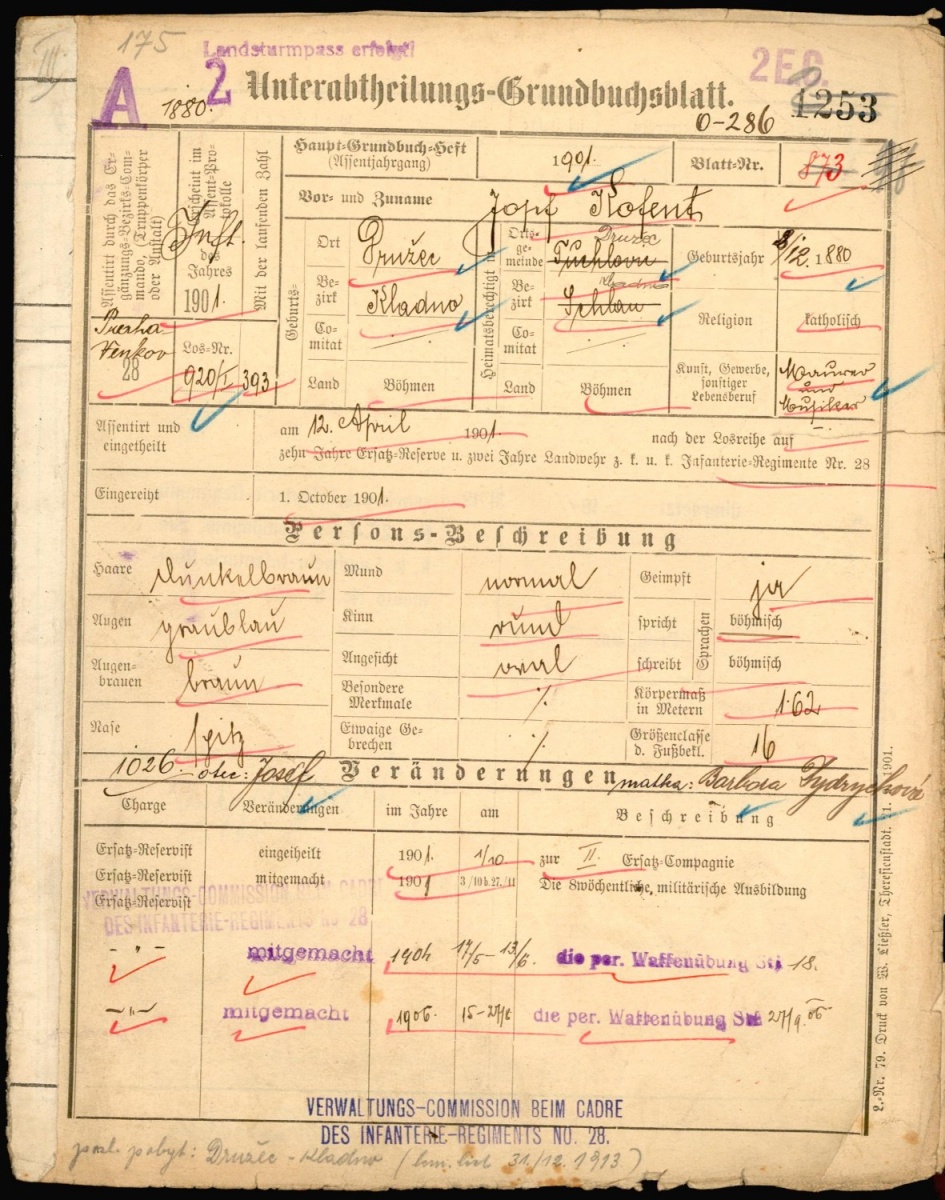 175
Landsturmpass erfolgt!
A 1880. 2 Unterabtheilungs-Grundbuchsblatt. 2EC.
1253
0-286
Assentirt durch das Ergänzungs-Bezirks-Commando, (Truppenkörper oder Anstalt)
Praha
Venkov
28
Erscheint im Assent-Protokolle
Inft.
des Jahres
1901.
Los-Nr.
920/I
Mit der laufenden Zahl
393
Haupt-Grundbuch-Heft
(Assentjahrgang)
1901.
Blatt-Nr.
873
Vor- und Zuname
Josef Kofent
Geburts-
Ort
Družec
Bezirk
Kladno
Comitat
Land
Böhmen
Heimatsberechtigt in
Ortsgemeinde
Družec
Tuchlovic
Bezirk
Kladno
Schlan
Comitat
Land
Böhmen
Geburtsjahr
8/12. 1880
Religion
katholisch
Kunst, Gewerbe, sonstiger Lebensberuf
Maurer
und
Musiker
Assentirt und eingetheilt
am 12. April 1901. nach der Losreihe auf
zehn Jahre Ersatz-Reserve u. zwei Jahre Landwehr z. k. u. k. Infanterie-Regimente Nr. 28
Eingereiht 1. October 1901.
Persons-Beschreibung
Haare dunkelbraun Mund normal Geimpft ja
Augen graublau Kinn rund spricht böhmisch
Sprachen
Augenbrauen braun Angesicht oval schreibt böhmisch
Besondere Merkmale ·/. Körpermaß in Metern 1·62
Nase spitz Etwaige Gebrechen ·/. Größenclasse d. Fußbekl. 16
1026. otec: Josef Veränderungen matka: Barbora Fydrychová
Charge Veränderungen im Jahre am Beschreibung
Ersatz-Reservist eingetheilt 1901. 1/10 zur II. Ersatz-Compagnie
Ersatz-Reservist mitgemacht 1901 3/10 b. 27./11 Die 8wöchentliche, militärische Ausbildung
Ersatz-Reservist
VERWALTUNGS-COMMISSION BEIM CADRE
DES INFANTERIE-REGIMENTS NO 28
- " - mitgemacht 1904 17/5 13/6. die per. Waffenübung 18.
- " - mitgemacht 1906. 15-27/6 die per. Waffenübung 27/9. 06
VERWALTUNGS-COMMISSION BEIM CADRE
DES INFANTERIE-REGIMENTS NO. 28.
posl. pobyt: Družec - Kladno ( 31./12. 1913.)
L.-Nr. 79. Druck von W. Ließler, Theresienstadt. 1901.